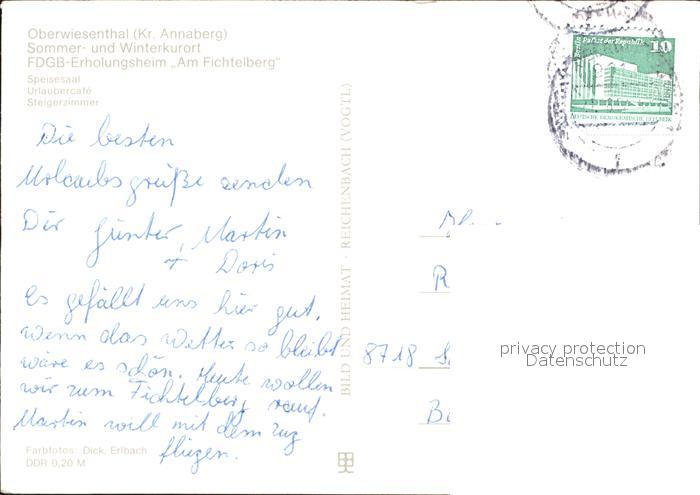 Oberwiesenthal (Kr. Annaberg)
Sommer- und Winterkurort
FDGB-Erholungsheim „Am Fichtelberg"
Speisesaal
Urlaubercafé
Steigerzimmer
Die besten
Urlaubsgrüße senden
Dir Günter, Martin
+ Doris
Es gefällt uns hier gut,
wenn das Wetter so bleibt
wäre es schön. Heute wollen
wir zum Fichtelberg rauf.
Martin will mit dem Zug
fliegen.
Farbfotos: Dick, Erlbach
DDR 0,20 M
BILD UND HEIMAT · REICHENBACH (VOGTL)
Berlin Palast der Republik 10
DEUTSCHE DEMOKRATISCHE REPUBLIK
R
8718
privacy protection
Datenschutz